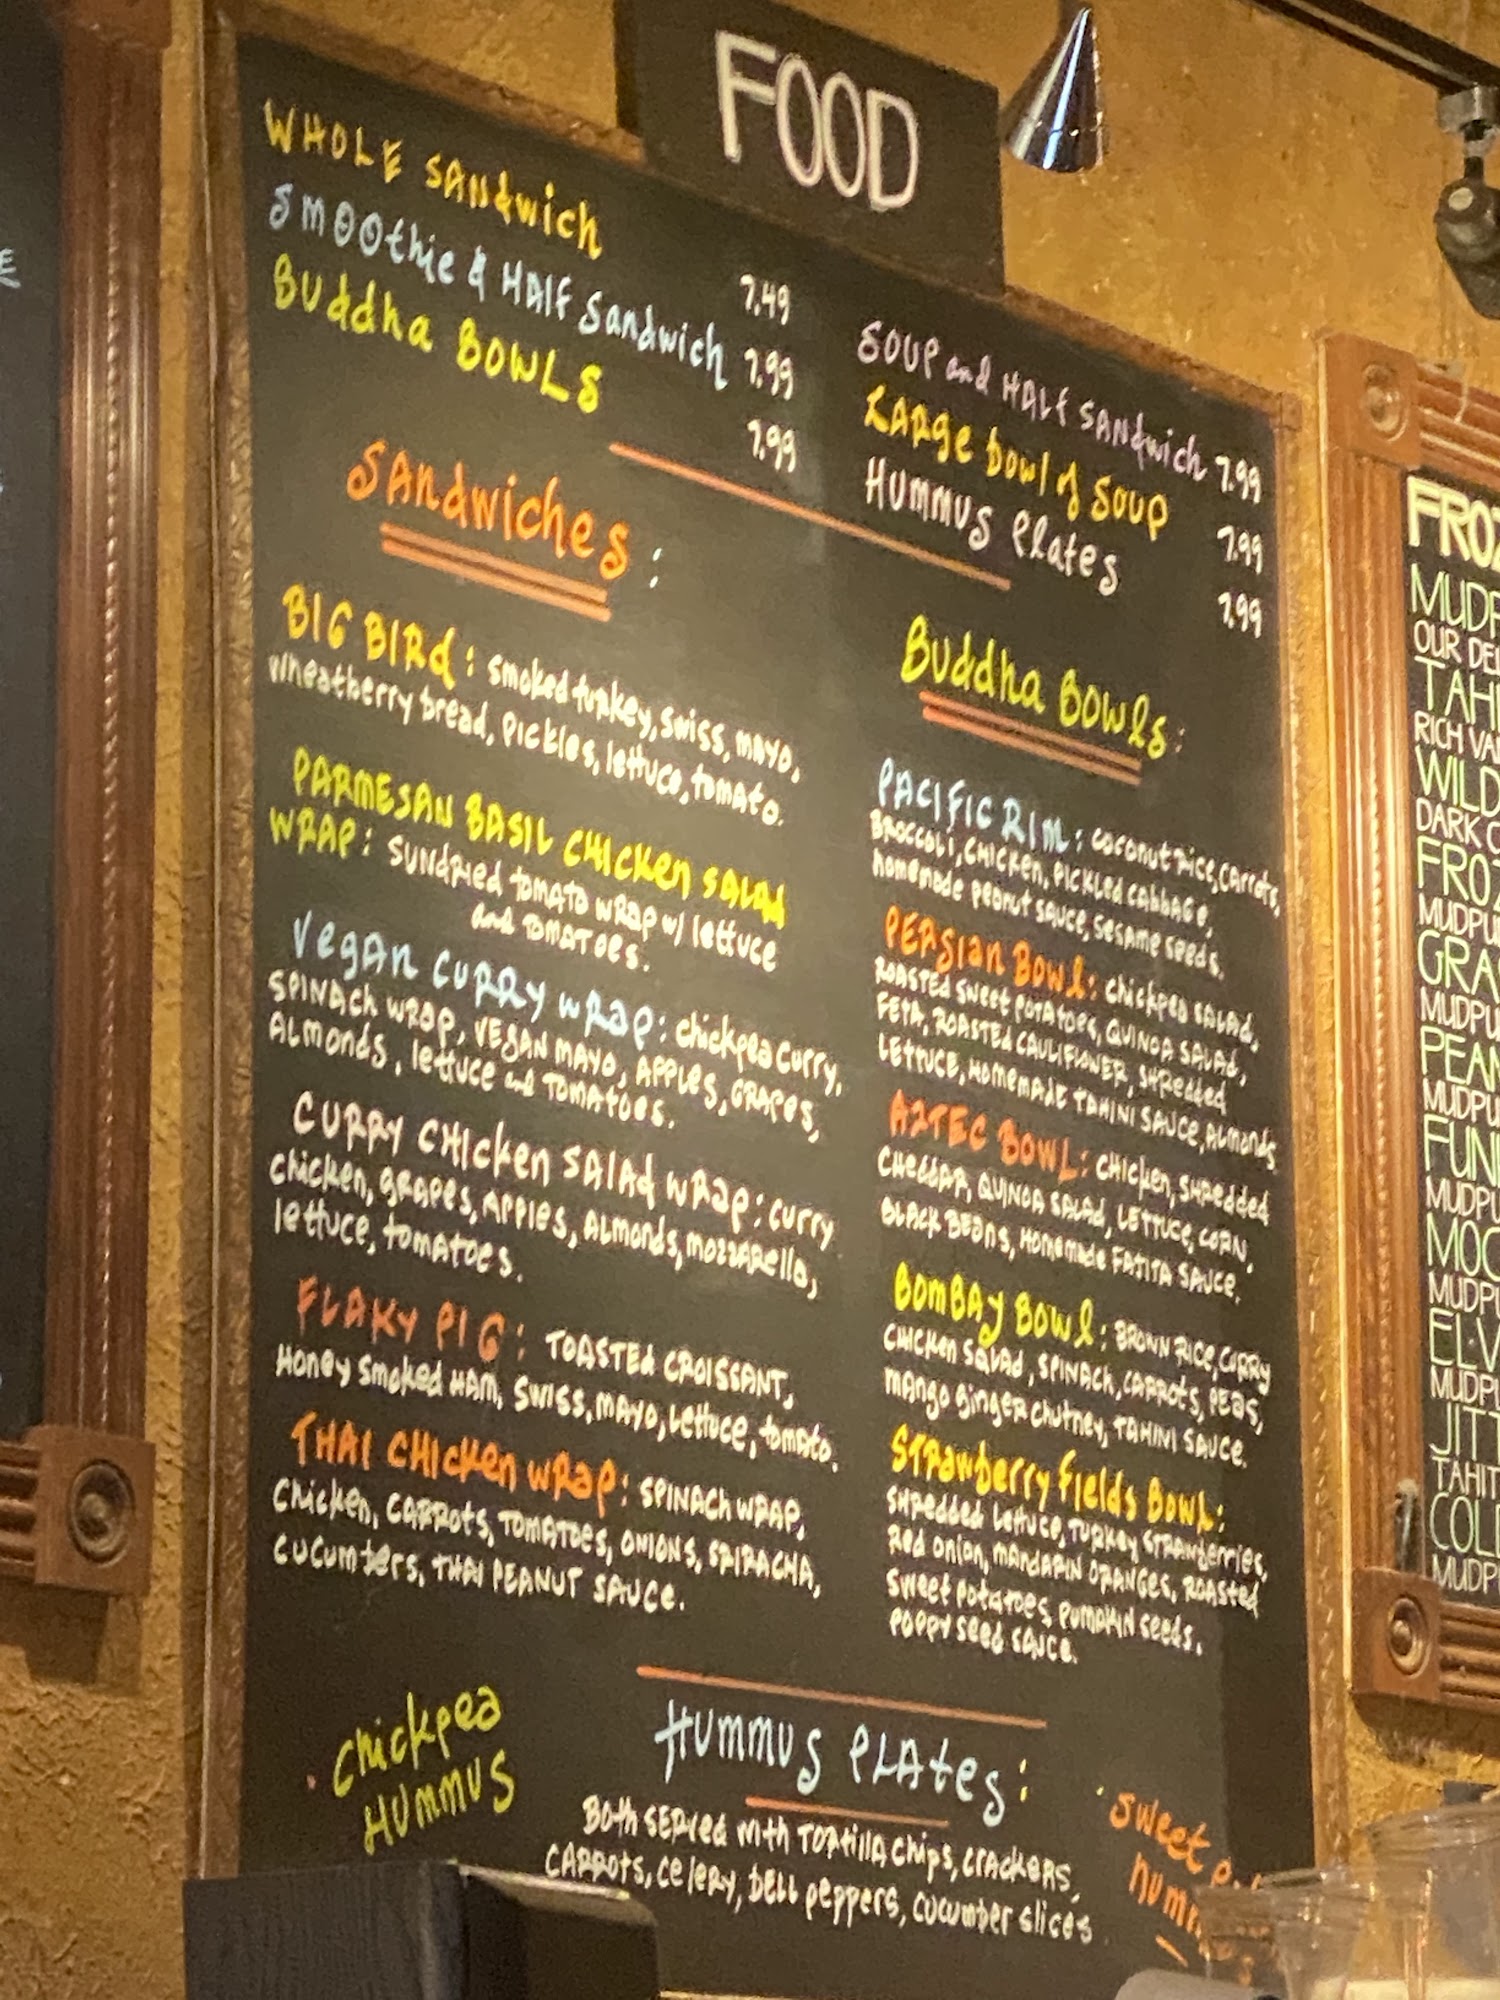 FOOD
WHOLE SANdwich 7.49
SMOOthie & HAlF Sandwich 7.99
Buddha BOWLS 7.99
SOUP and HALf SANdwich 7.99
LARge bowl of SOUP 7.99
HUMMUS Plates 7.99
SANdwiches:
BIG BIRd: Smoked turkey, swiss, mayo,
wheatberry bread, pickles, lettuce, tomato.
PARMESAN BASIL CHIcken SALAd
WRAP: SUNdRied tomato wRap w/ lettuce
and tOMATOES.
Vegan CURRY WRAp: chickpea curry,
SPINAch wrap, VEGAN MAYO, APPLES, GRAPES,
ALMONdS, lettuce and TOMATOES.
CURRY CHIcken SALAd wRap: curry
chicken, gRAPES, APPLES, ALMONds, MOZZARella,
lettuce, tOMATOES.
FLAKY PIG: TOASTEd CROISSANT,
Honey Smoked HAM, SWISS, MAYO, Lettuce, tomato.
THAI CHIcken wRap: SPINACH WRAP,
Chicken, CARROts, TOMATOES, ONIONS, SRIRACHA,
CUCUMBERS, THAI PEANUT SAUCE.
Buddha BOWls:
PACIFIC RIM: coconut rice, carrots,
BROCCOLI, CHICKEN, PICKLEd CABBAGE,
homemade peanut sauce, sesame seeds.
PERSIAN BOWl: chickpea SALAD,
ROASTED SWEET POTATOES, QUINOA SALAD,
FETA, ROASTED CAULIFLOWER, SHREDDED
LETTUCE, HOMEMADE TAHINI SAUCE, ALMONdS
AZTEC BOWL: CHICKEN, SHREDDED
CHEDDAR, QUINOA SALAD, LETTUCE, CORN,
BLACK BEANS, HOMEMADE FAJITA SAUCE.
BOMBAY BOWl: BROWN RICE, CURRY
CHICKEN SALAD, SPINACH, CARROTS, PEAS,
MANGO GINGER CHUTNEY, TAHINI SAUCE.
STRAwberry fields Bowl:
SHREDDED LETTUCE, TURKEY, STRAWBERRIES,
Red ONION, MANDARIN ORANGES, ROASTED
Sweet POTATOES, PUMPKIN SEEDS.
POPPY SEED SAUCE.
HUMMUS PLAtes:
• Chickpea
HUMMUS
BOTH SERVED WITH TORTILLA CHIPS, CRACKERS,
CARROTS, CELERY, BELL PEPPERS, CUCUMBER SLICES
• Sweet
FROZ
MUDP
OUR DEL
TAHI
RICH VA
WILD
DARK C
FROZ
MUDPU
GRA
MUDPU
PEAN
MUDPU
FUN
MUDPU
MOC
MUDPU
EL-V
MUDPU
JITT
TAHIT
COL
MUDP